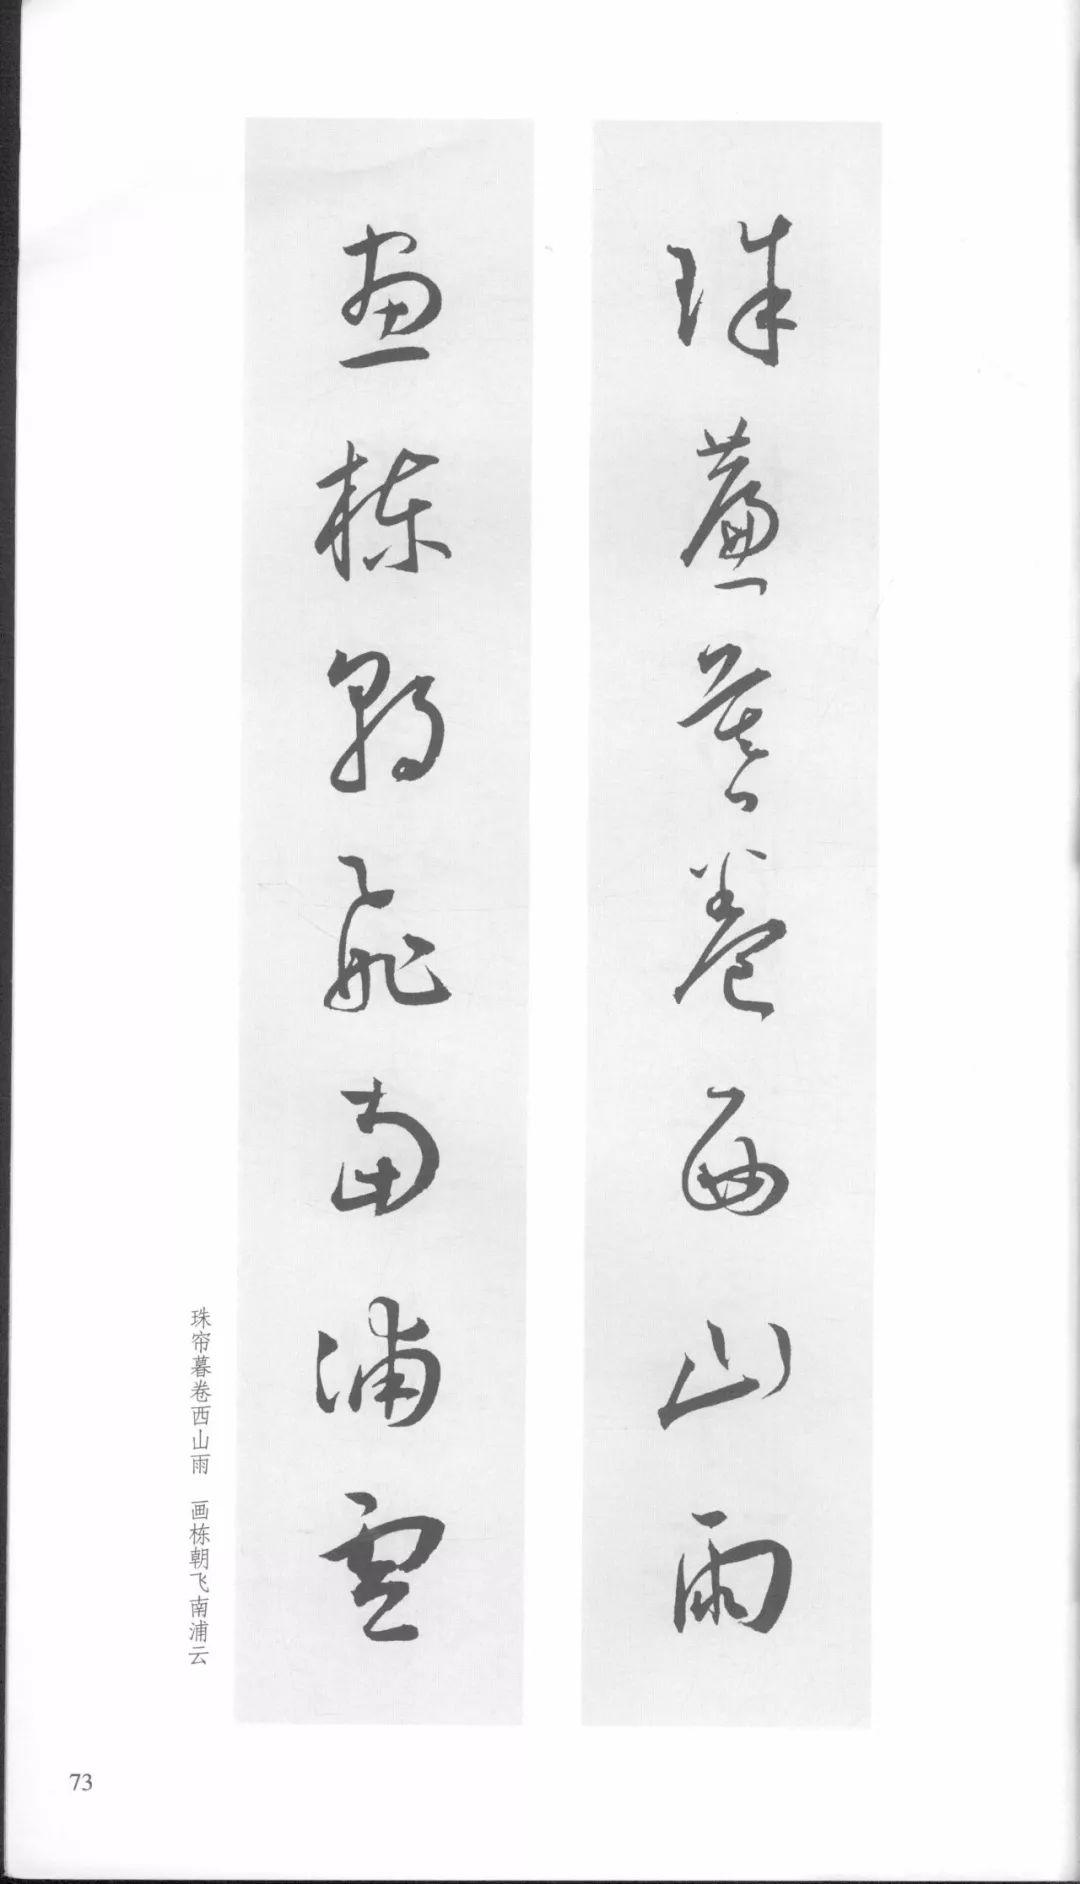 珠簾暮卷西山雨
畫棟朝飛南浦雲
珠帘暮卷西山雨 画栋朝飞南浦云
73